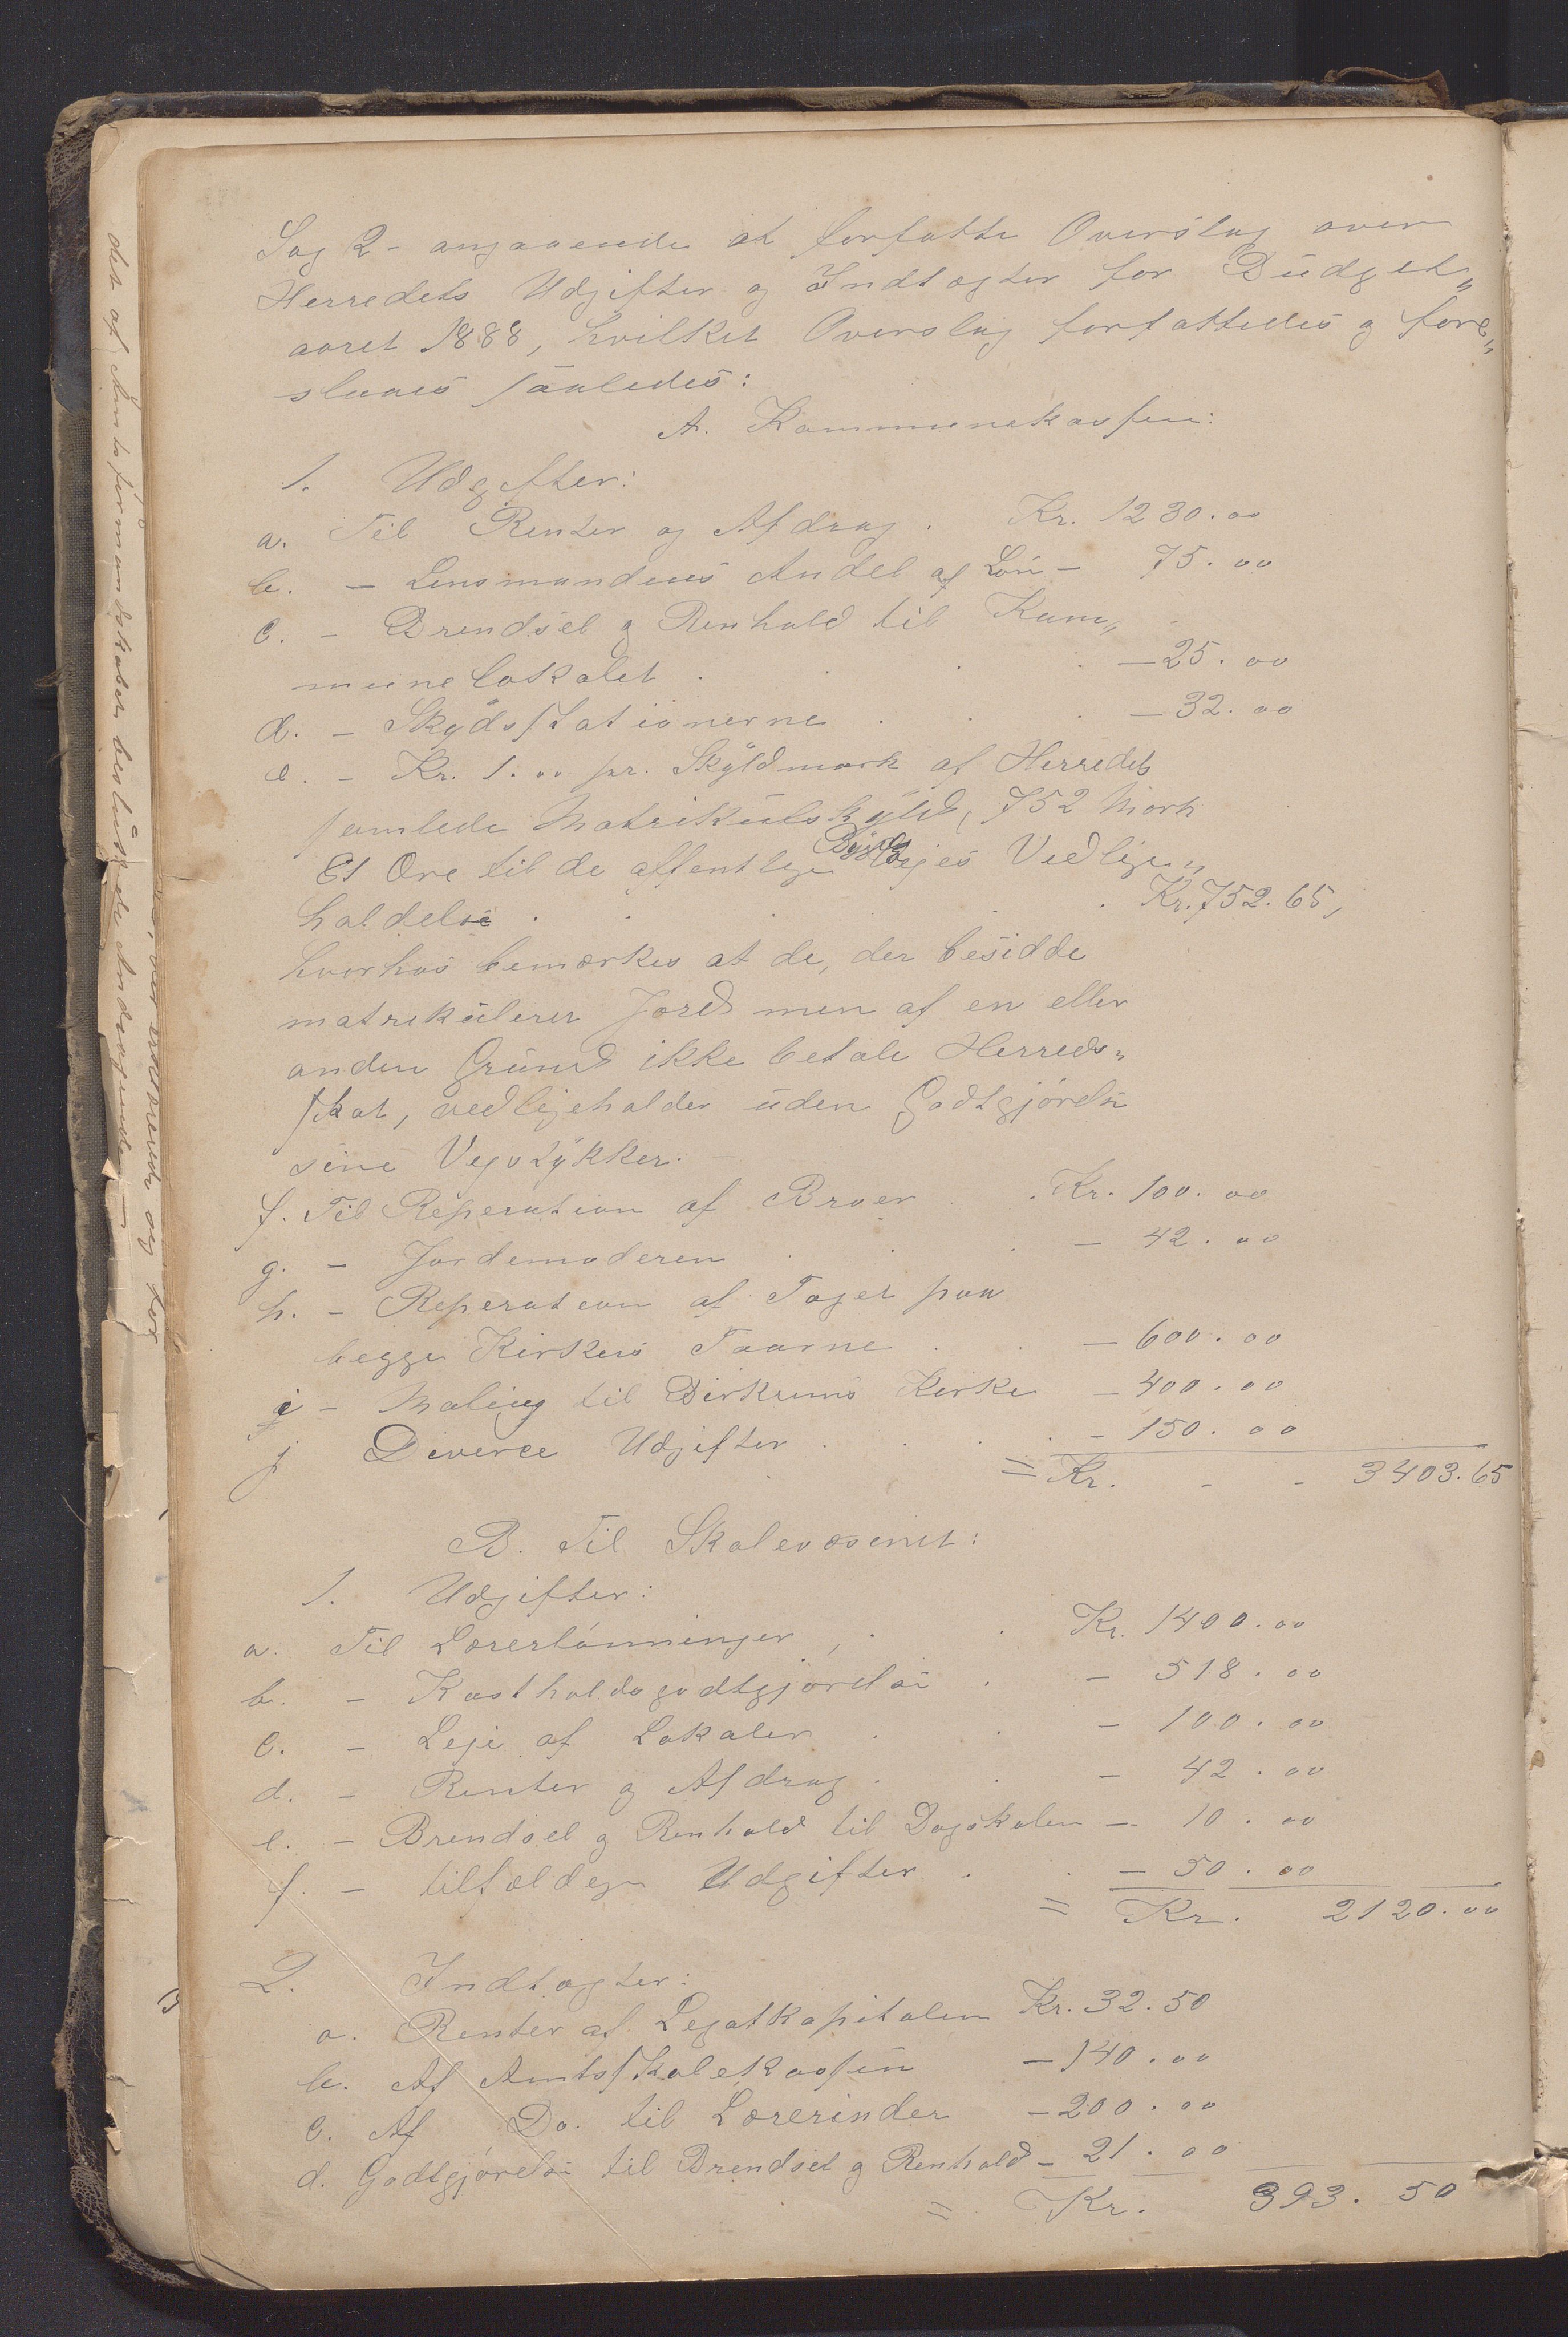 Sag 2 - angaaende at forfatte Overslag over
Herredets Udgifter og Indtægter for Budget„
aaret 1888, hvilket Overslag forfattedes og fore„
sloges saaledes:
A. Kommunekassen:
1. Udgifter:
a. Til Renter og Afdrag . Kr. 1230.00
b. - Lensmandens Andel af Løn - 75.00
c. - Brendsel og Renhold til Kom„
munelokalet . . . - 25.00
d. - Skydsstationerne . . - 32.00
e. - Kr. 1.00 pr. Skyldmark af Herredets
samlede Matrikulskyld, 752 Mark
61 Øre til de offentlige Bygdevejes Vedlige„
holdelse . . . . Kr. 752.65,
hvorhos bemærkes at de, der besidde
matrikuleret Jord men af en eller
anden Grund ikke betale Herreds„
skat, vedligeholder uden Godtgjørelse
sine Vejstykker. -
f. Til Reperation af Broer . Kr. 100.00
g. - Jordemoderen . . - 42.00
h. - Reperation af Taget paa
begge Kirkers Taarne . . - 600.00
i - Maling til Birkrems Kirke - 400.00
j Diverce Udgifter . . . - 150.00
= Kr. - - 3403.65
B. Til Skolevæsenet:
1. Udgifter:
a. Til Lærerlønninger, . . Kr. 1400.00
b. - Kostholdsgodtgjørelse . - 518.00
c. - Leje af Lokaler . . - 100.00
d. - Renter og Afdrag . . - 42.00
e. - Brendsel og Renhold til Dagskolen - 10.00
f. - tilfældige Udgifter . . - 50.00
= Kr. 2120.00
2. Indtægter:
a. Renter af Legatkapitalen Kr. 32.50
b. Af Amtsskolekassen - 140.00
c. Af Do. til Lærerinder - 200.00
d. Godtgjørelse til Brendsel og Renhold - 21.00
= Kr. 393.50
det af Amtsformandskabet besluttede Andragende -
erklærende sig for